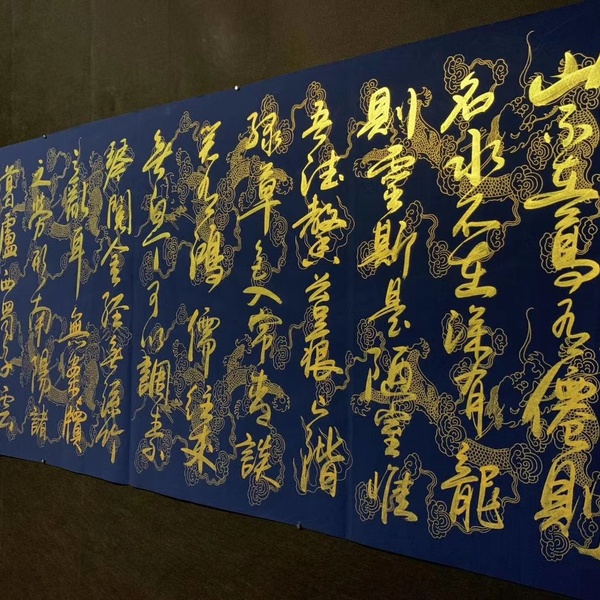 山不在高有僊則
名水不在深有龍
則靈斯是陋室惟
吾德馨苔痕上階
綠草色入帘青談
笑有鴻儒往來
無白丁可以調素
琴閱金經無絲竹
之亂耳無案牘
之勞形南陽諸
葛廬西蜀子雲